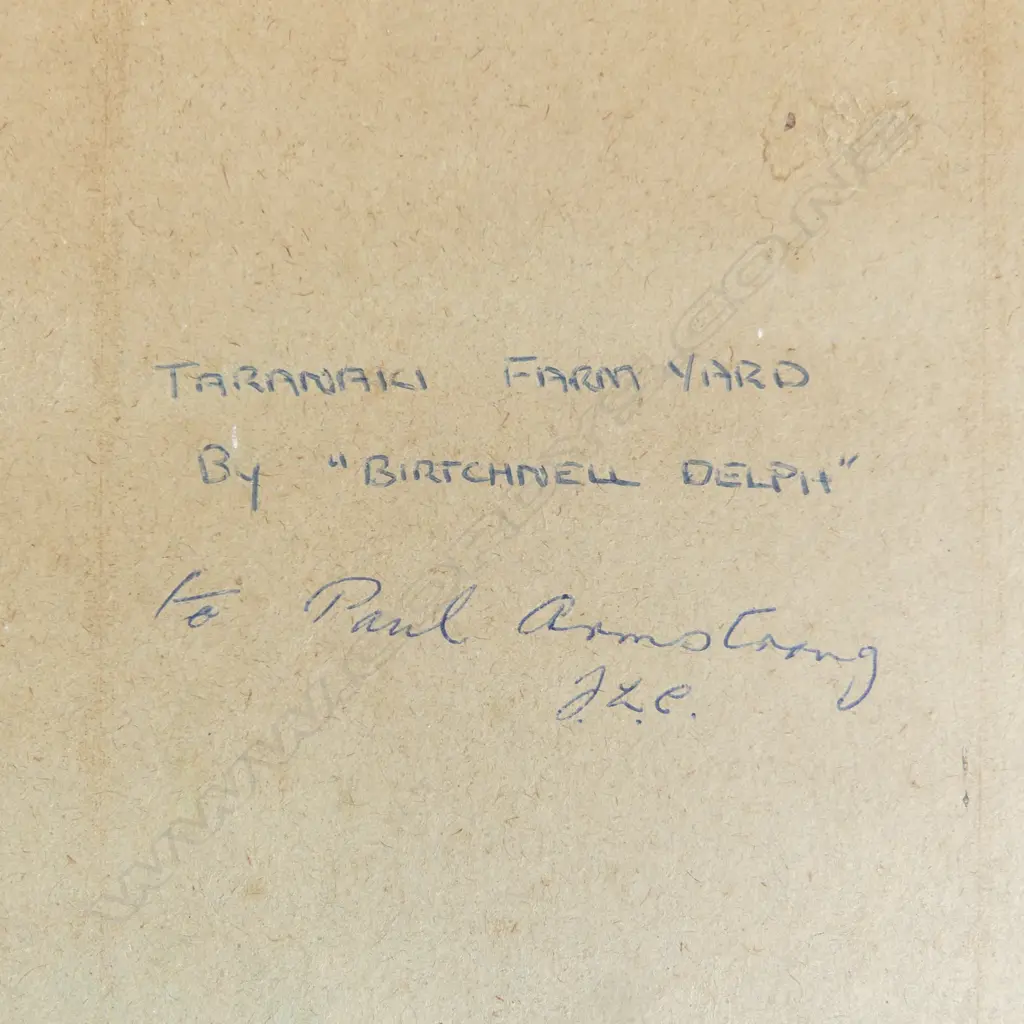 TARANAKI FARM YARD
By "BIRTCHNELL DELPH"
to Paul Armstrong
J.L.C.